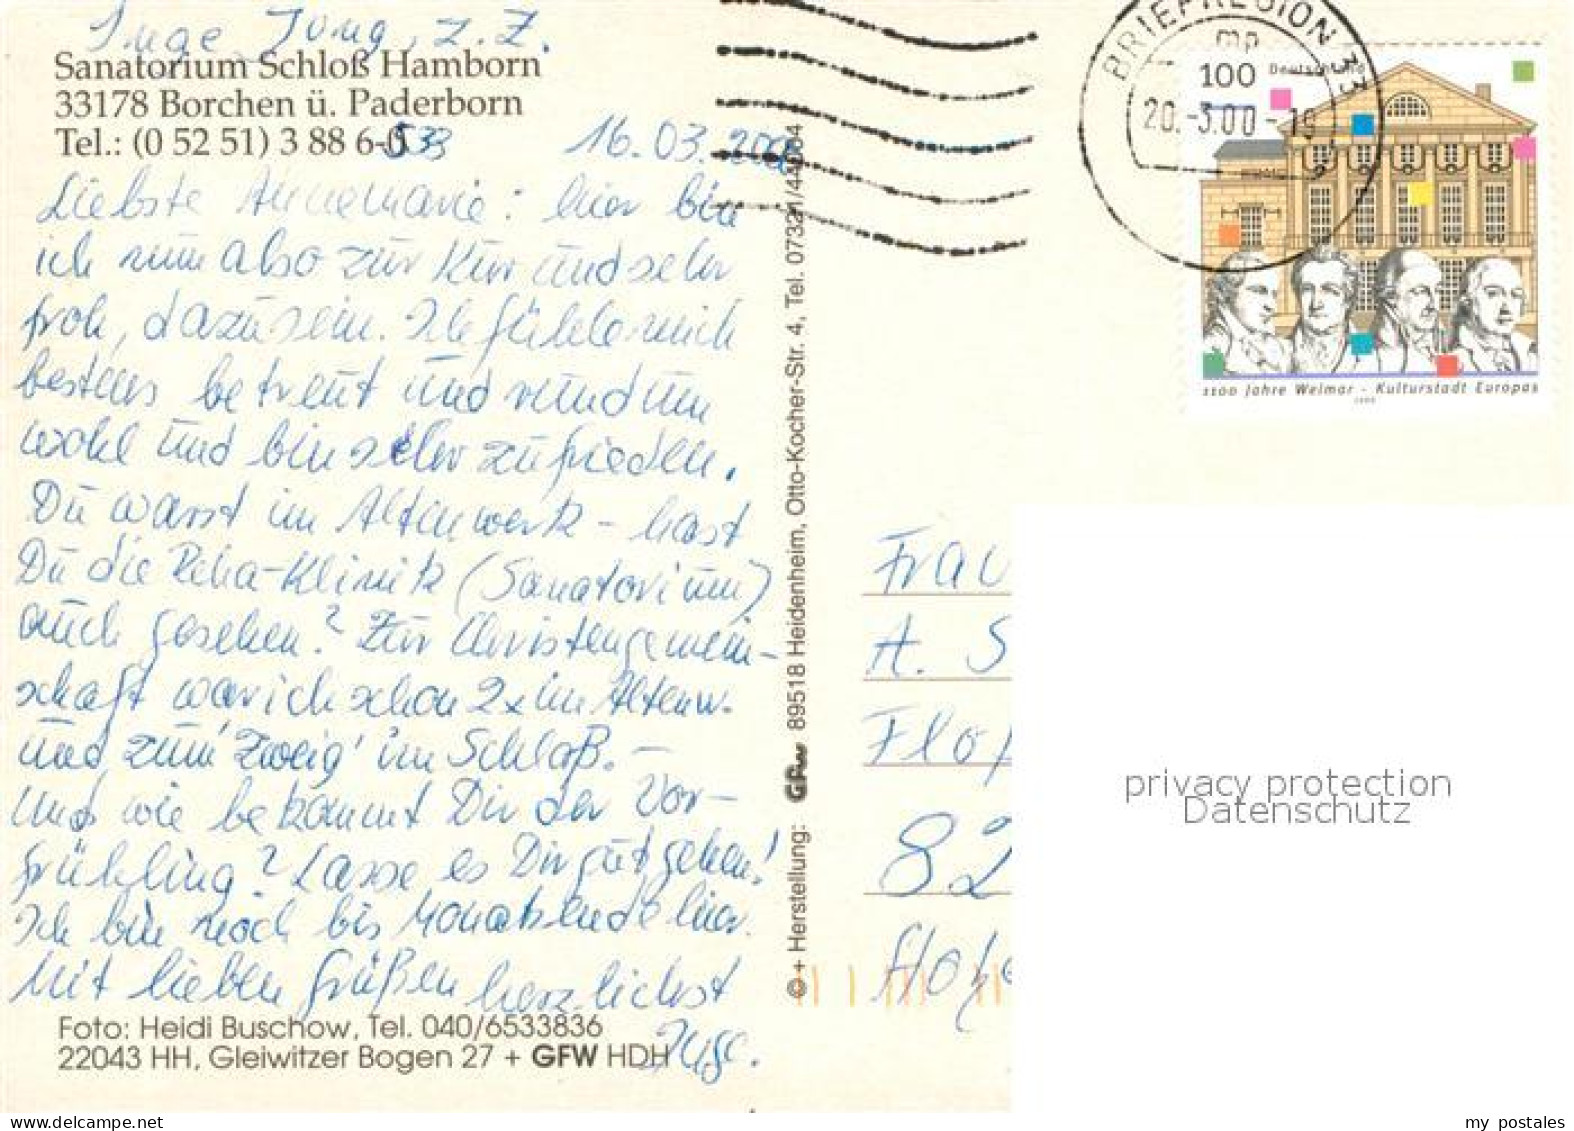 Inge Jung, z. Z.
Sanatorium Schloß Hamborn
33178 Borchen ü. Paderborn
Tel.: (0 52 51) 3 88 6-533
16.03.200
Liebste Annemarie: hier bin
ich nun also zur Kur und sehr
froh, dazusein. Ich fühle mich
bestens betreut und rundum
wohl und bin sehr zufrieden.
Du warst im Altenwerk – hast
Du die Reha-Klinik (Sanatorium)
auch gesehen? Zur Christengemein-
schaft war ich schon 2x im Altenw.
und zum 'Zweig' im Schloß. –
Und wie bekommt Dir der Vor-
frühling? Lasse es Dir gut gehen!
Ich bin noch bis Monatsende hier.
Mit lieben Grüßen herzlichst
Inge.
Foto: Heidi Buschow, Tel. 040/6533836
22043 HH, Gleiwitzer Bogen 27 + GFW HDH
© + Herstellung: GFW 89518 Heidenheim, Otto-Kocher-Str. 4, Tel. 07321/44084
BRIEFREGION 33
mp
20.-3.00-19
100 Deutschland
1100 Jahre Weimar - Kulturstadt Europas
1999
Frau
A. S
Flo
82
Holz
privacy protection
Datenschutz
my postales